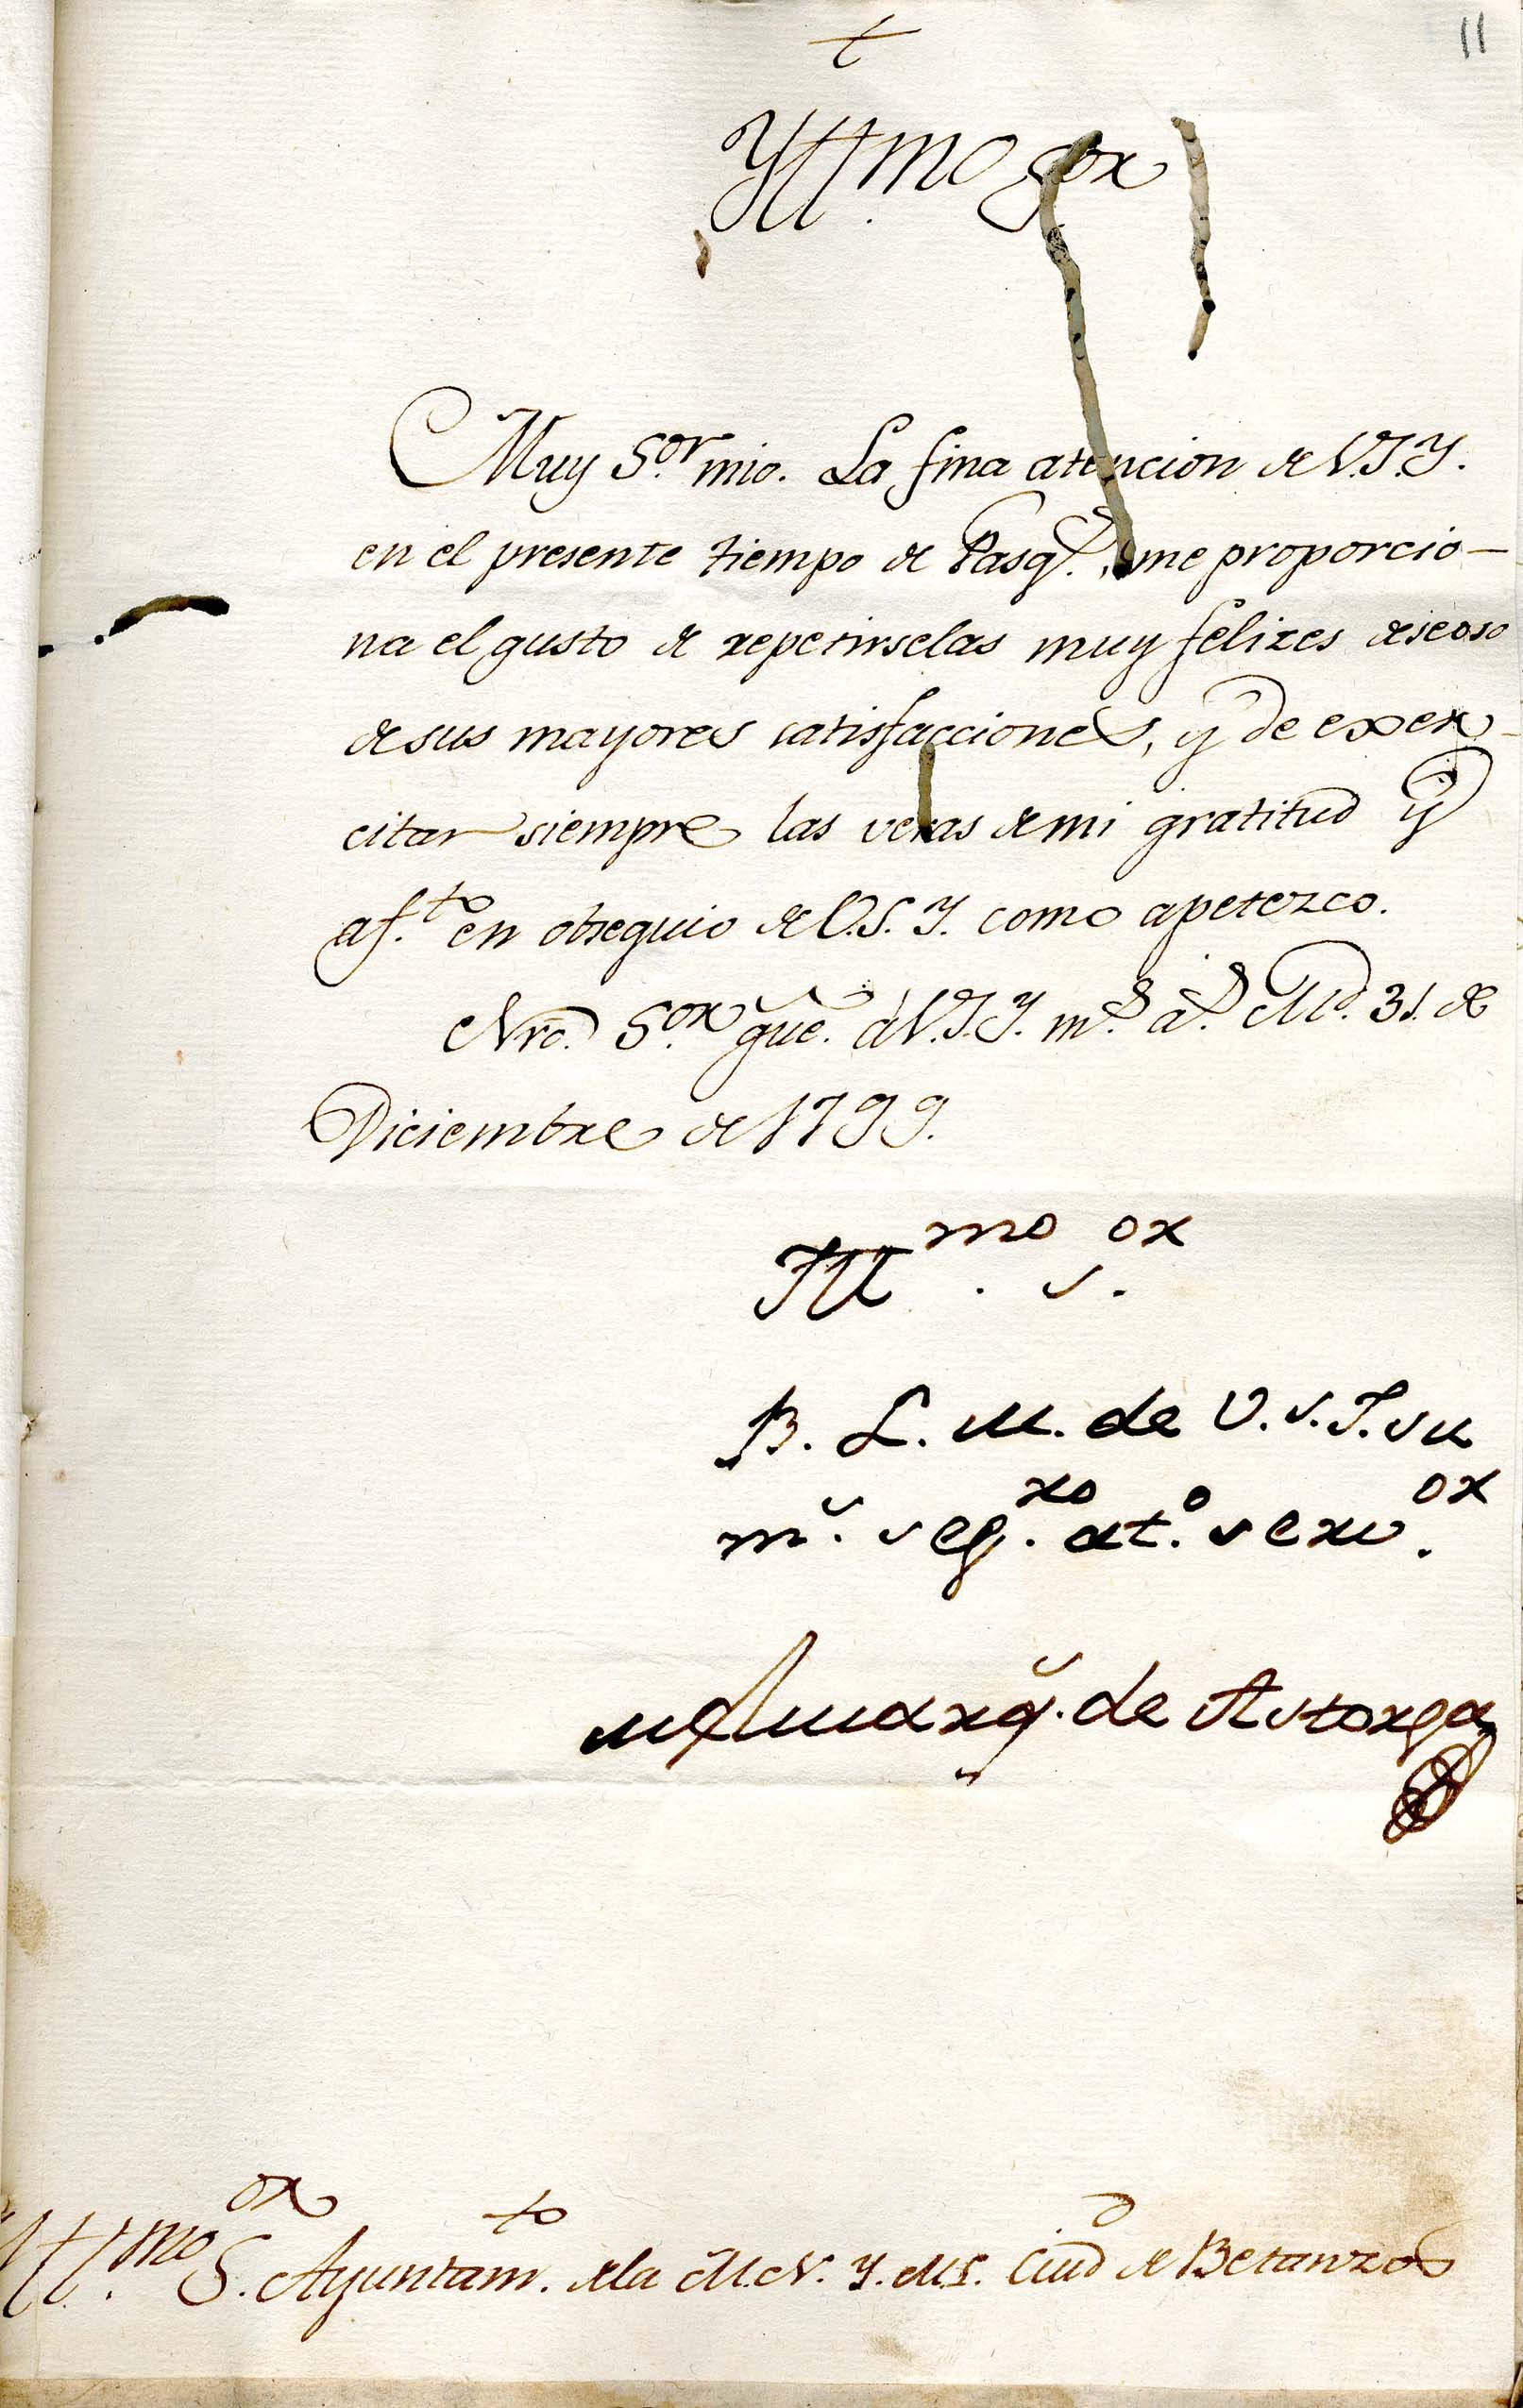 11
†
Yllmo Sor
Muy Sor. mio. La fina atencion de V.S.Y.
en el presente tiempo de Pasqs., me proporcio-
na el gusto de repetirselas muy felizes deseoso
de sus mayores satisfacciones, y de exer-
citar siempre las veras de mi gratitud y
af.to en obsequio de V.S.Y. como apetezco.
Nro. Sor. gue. a V.S.Y. ms. as. Md. 31. de
Diciembre de 1799.
Illmo. Sor.
B. L. M. de V.S.I. su
ms. segro. ato. servor.
Marqs. de Astorga
Yllmo. Sor. Ayuntamto. de la M.N. Y. M.L. Ciud de Betanzos